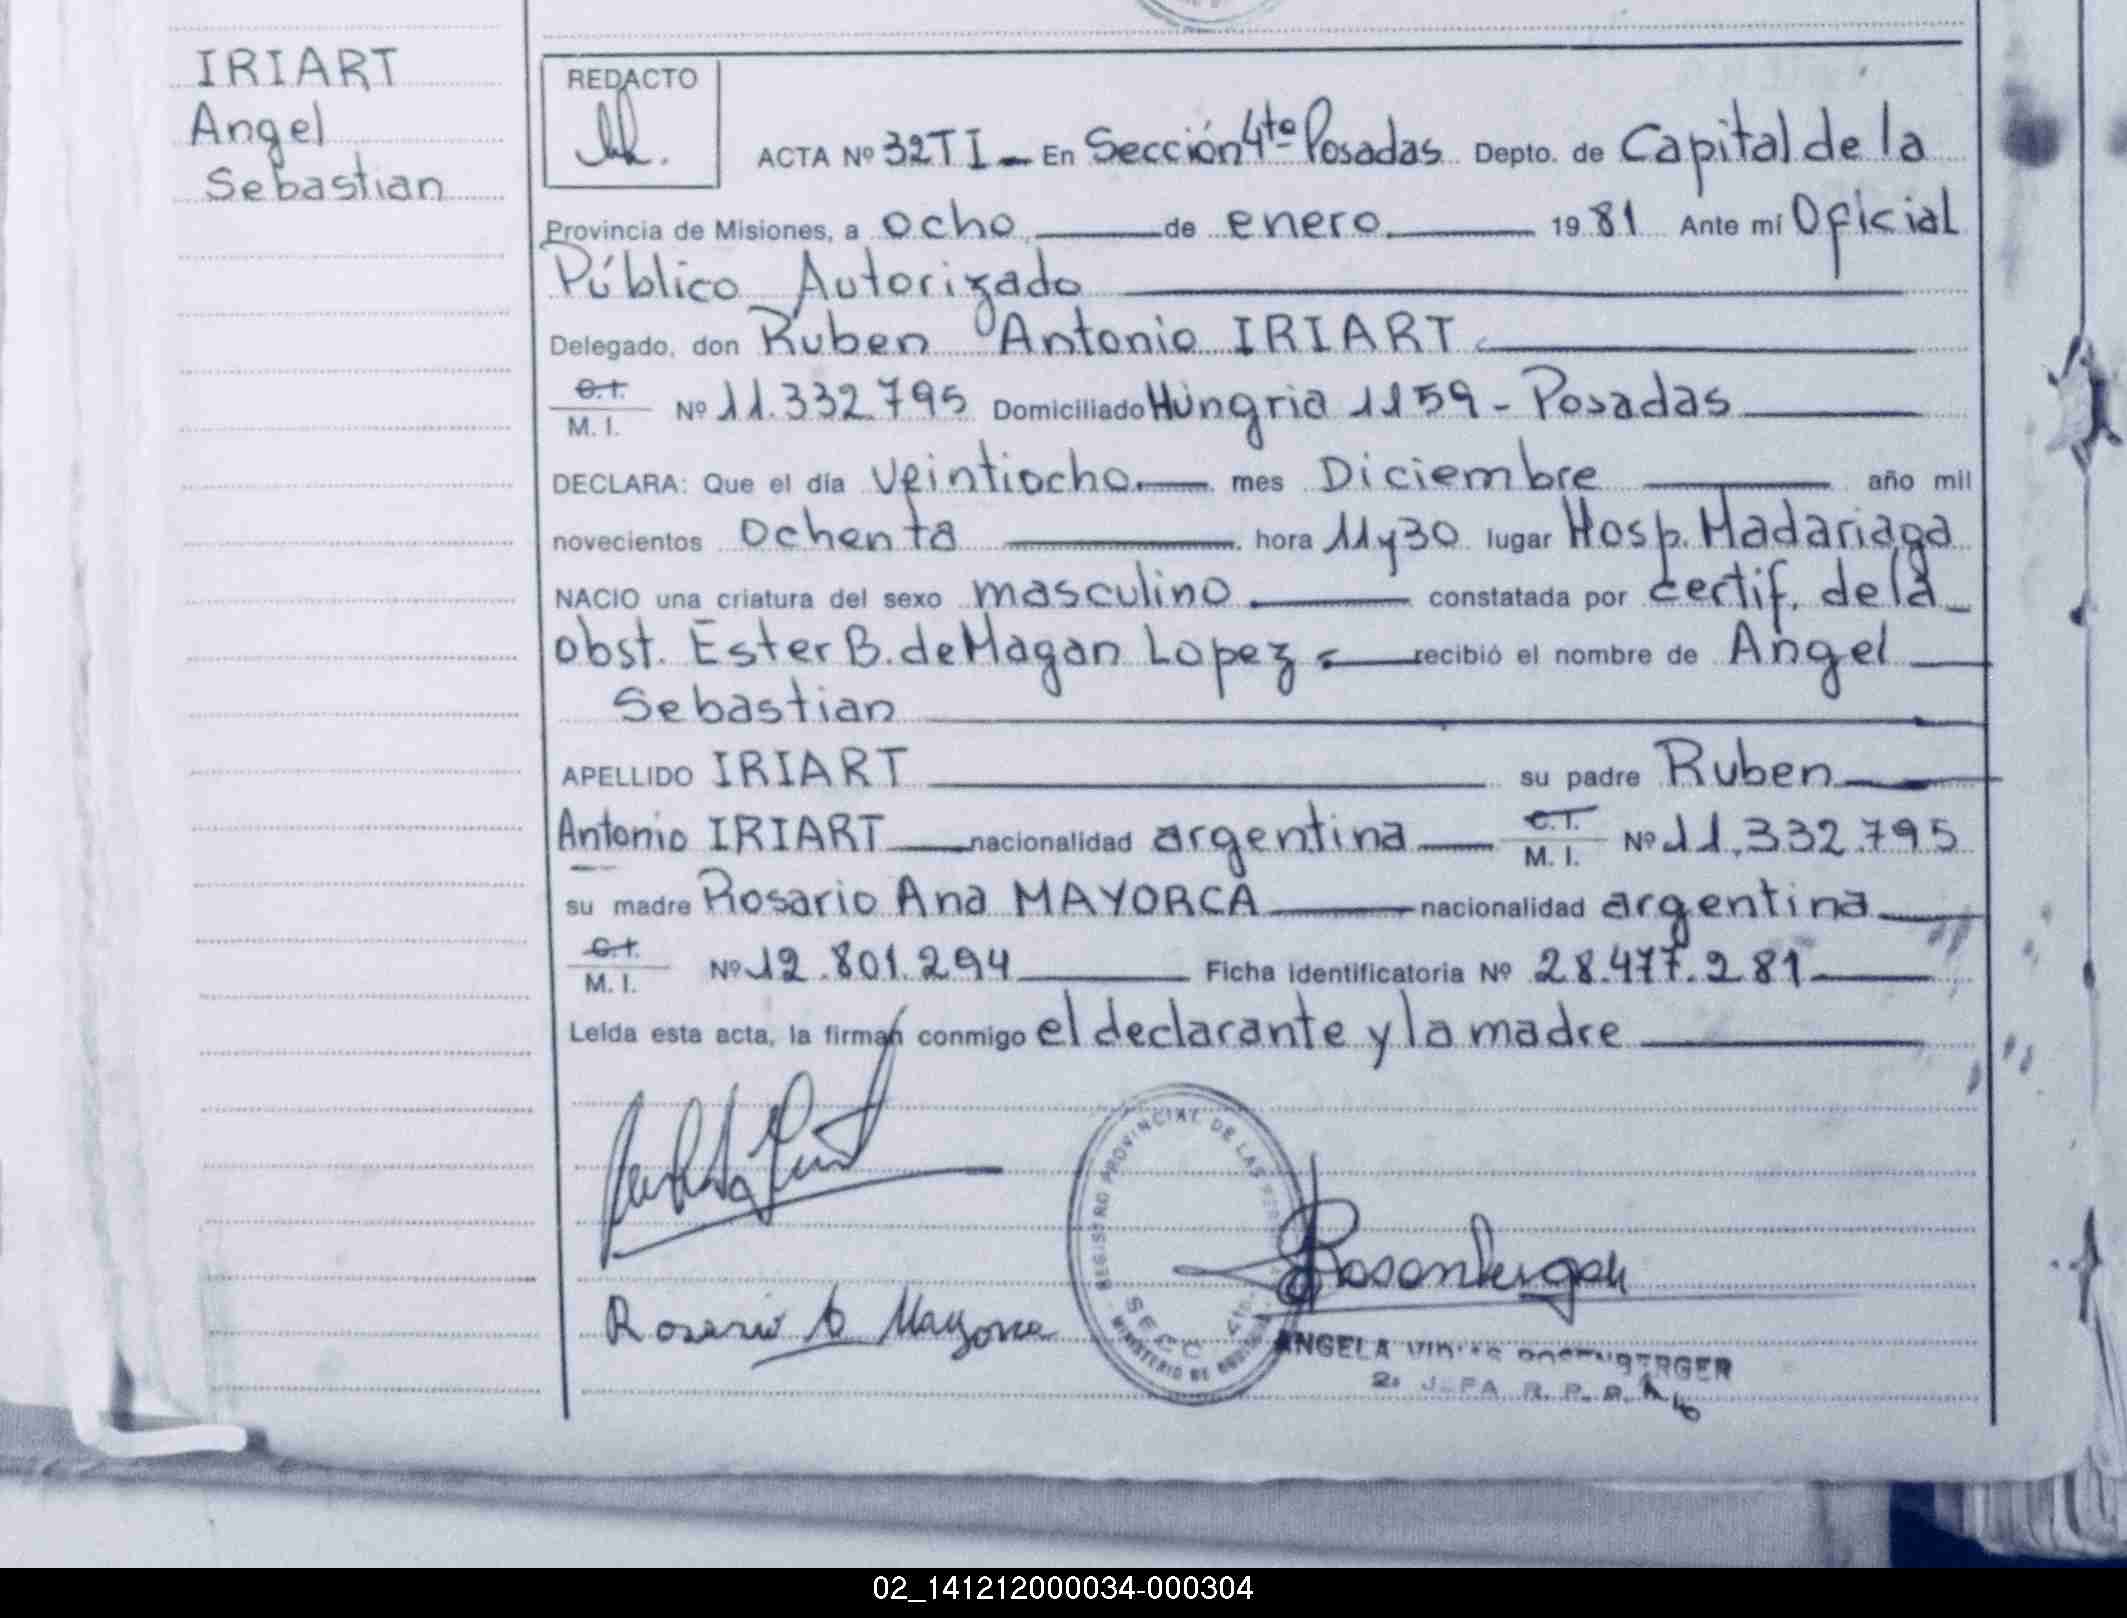 IRIART
Angel
Sebastian
REDACTO
ACTA Nº 32 T I - En Sección 4ta Posadas Depto. de Capital de la
Provincia de Misiones, a ocho de enero 1981 Ante mí Oficial
Público Autorizado
Delegado, don Ruben Antonio IRIART
C.I.
M. I. Nº 11.332.795 Domiciliado Hungria 1159 - Posadas
DECLARA: Que el día veintiocho mes Diciembre año mil
novecientos ochenta hora 11 y 30 lugar Hosp. Madariaga
NACIO una criatura del sexo masculino constatada por certif. de la
obst. Ester B. de Magan Lopez recibió el nombre de Angel
Sebastian
APELLIDO IRIART su padre Ruben
Antonio IRIART nacionalidad argentina C.I.
M. I. Nº 11.332.795
su madre Rosario Ana MAYORCA nacionalidad argentina
C.I.
M. I. Nº 12.801.294 Ficha identificatoria Nº 28.477.281
Leída esta acta, la firman conmigo el declarante y la madre
REGISTRO PROVINCIAL DE LAS
SECC 4ta
MINISTERIO DE
Rosenberger
Rosario A Mayorca
ANGELA ROSENBERGER
2. JEFA R. P.
02_141212000034-000304